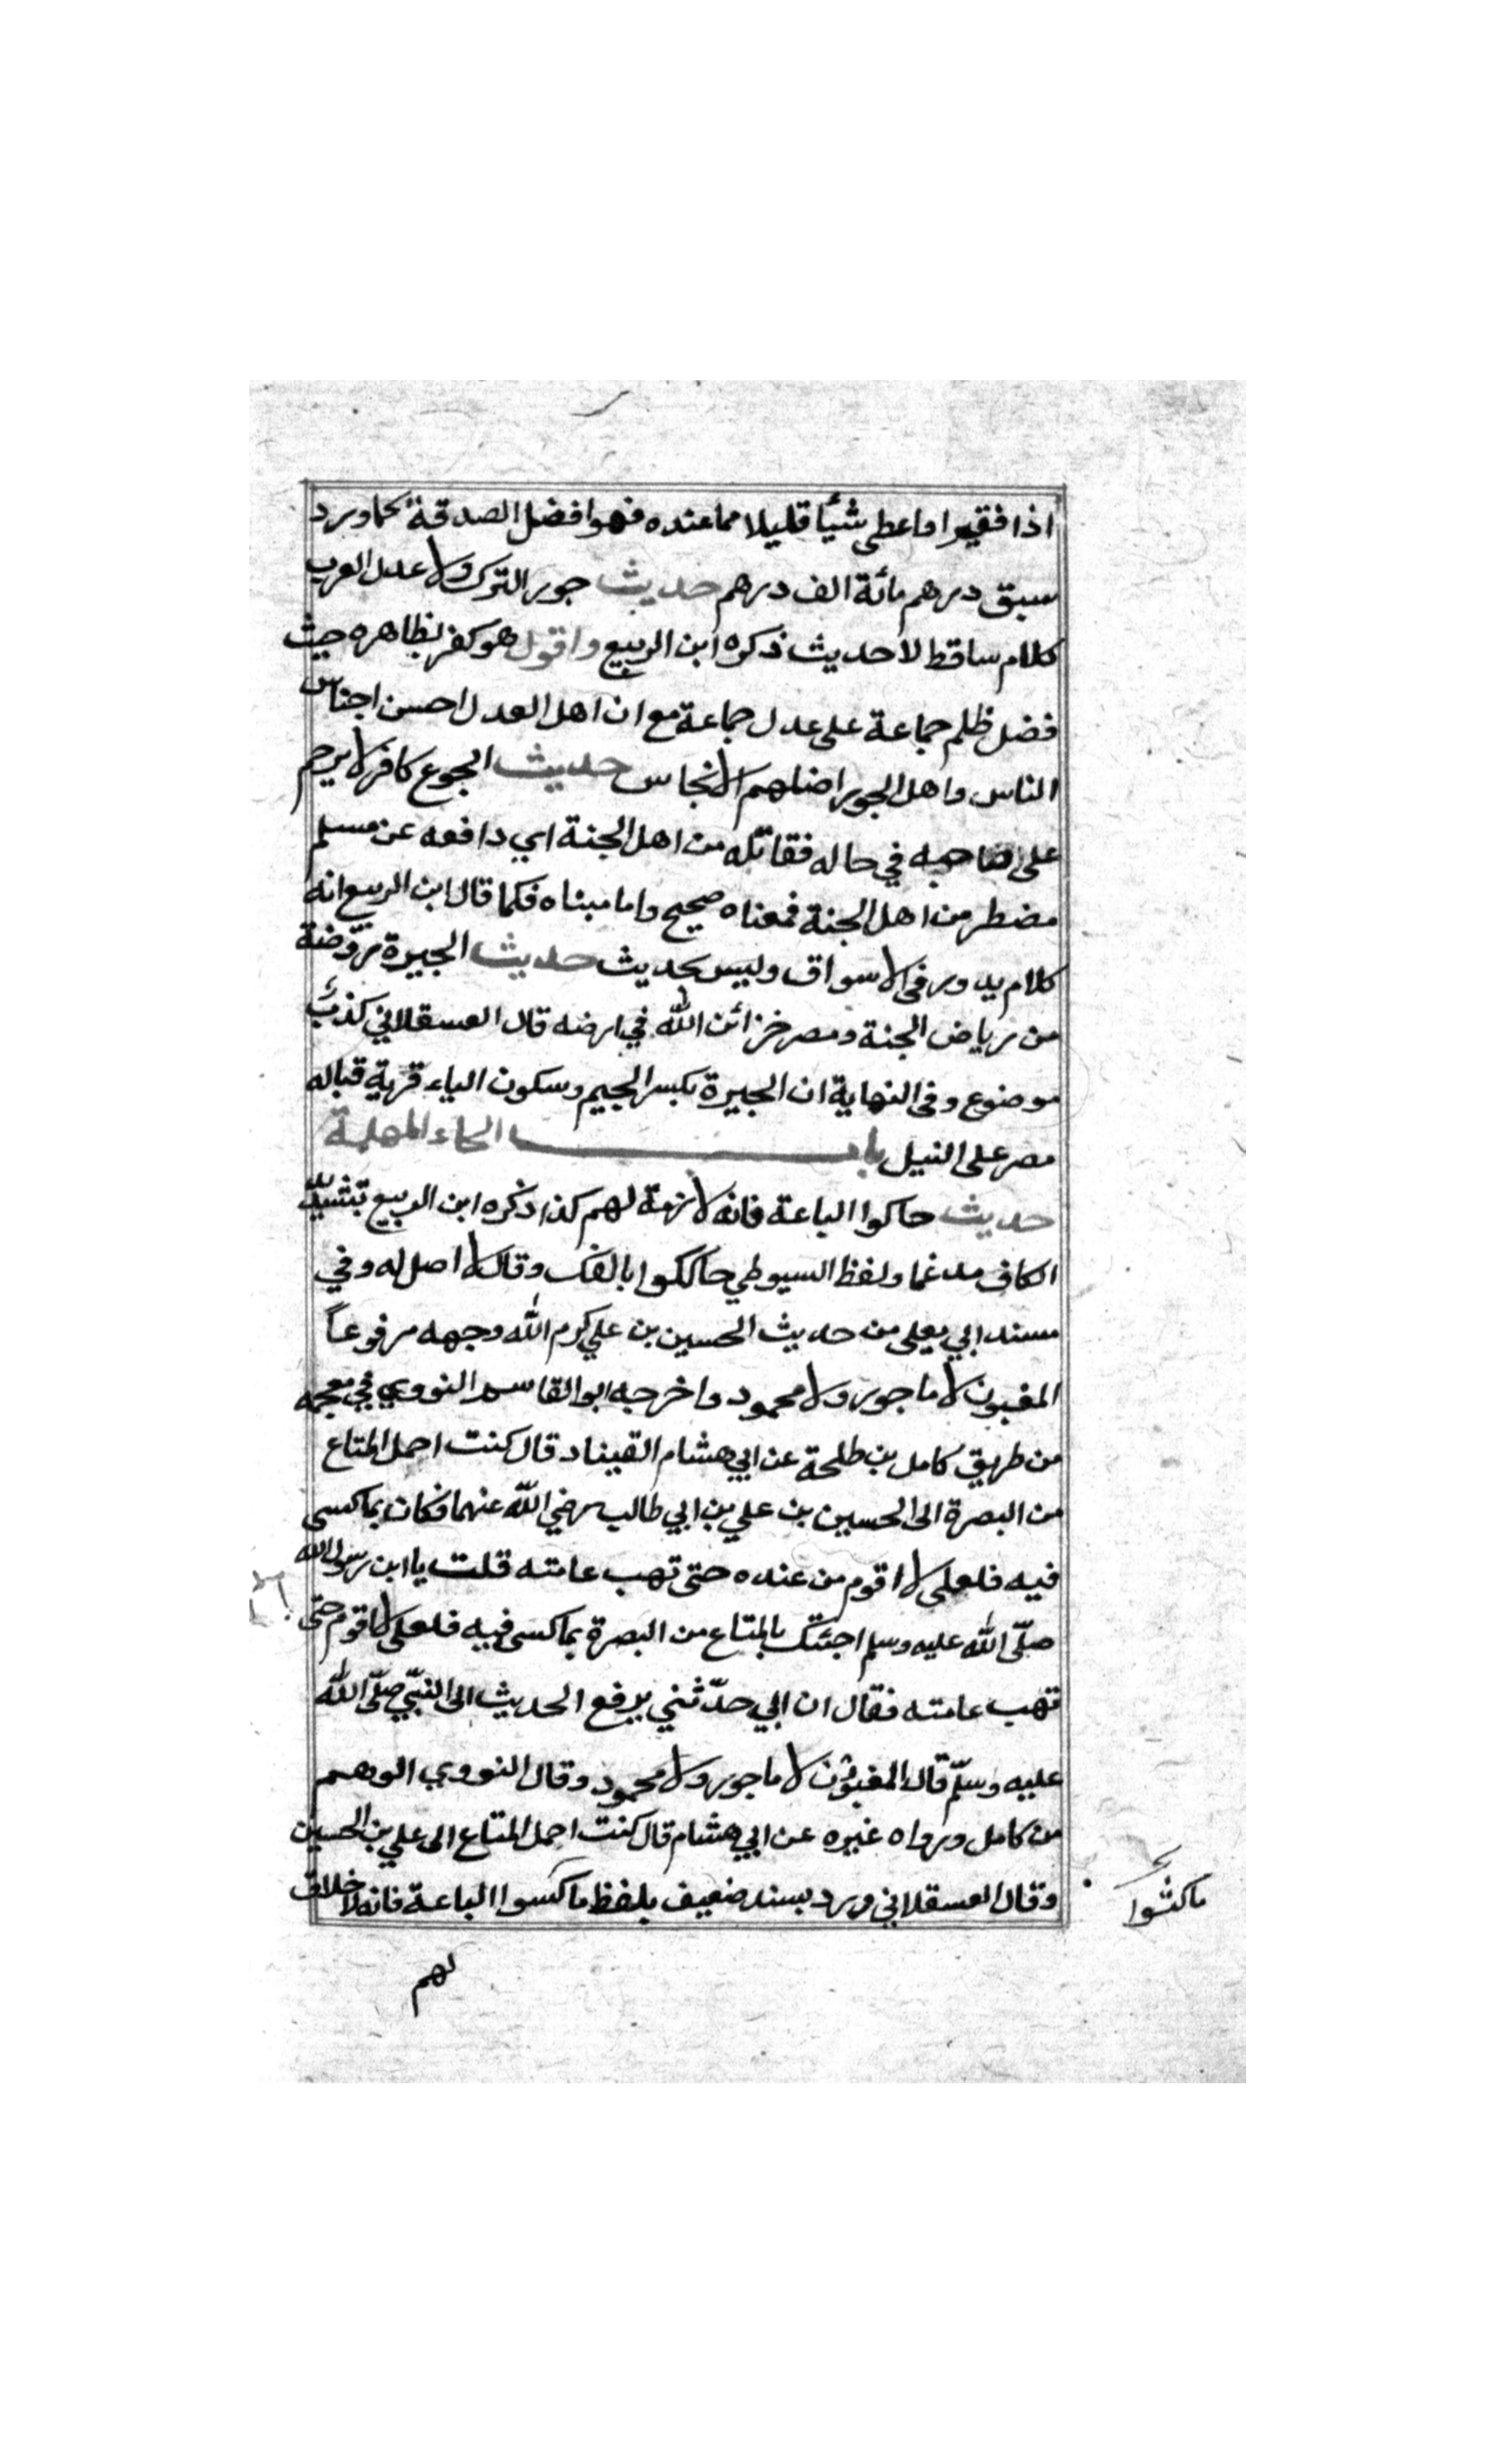 اذا فقيرا اعطى شيئا قليلا مما عنده فهو افضل الصدقة كما ورد
سبق درهم مائة الف درهم حديث جور الترك ولا عدل العرب
كلام ساقط لا حديث ذكره ابن الربيع واقول هو كفر بظاهره حيث
فضل ظلم جماعة على عدل جماعة مع ان اهل العدل احسن اجناس
الناس واهل الجور اضلهم الانجاس حديث الجوع كافر لا يرحم
على صاحبه في حاله فقاتله من اهل الجنة اي دافعه عن مسلم
مضطر من اهل الجنة فمعناه صحيح واما مبناه فكما قال ابن الربيع انه
كلام يدور في الاسواق وليس بحديث حديث الجيزة روضة
من رياض الجنة ومصر خزائن الله في ارضه قال العسقلاني كذب
موضوع وفي النهاية ان الجيزة بكسر الجيم وسكون الياء قرية قباله
مصر على النيل باب الحاء المهملة
حديث حاكوا الباعة فانه لا ذمة لهم كذا ذكره ابن الربيع بتشديد
الكاف مدغما ولفظ السيوطي حاككوا بالفك وقال لا اصل له وفي
مسند ابي يعلى من حديث الحسين بن علي كرم الله وجهه مرفوعاً
المغبون لا ماجور ولا محمود واخرجه ابو القاسم النووي في معجمه
من طريق كامل بن طلحة عن ابي هشام القيناد قال كنت احمل المتاع
من البصرة الى الحسين بن علي بن ابي طالب رضي الله عنهما فكان يماكسى
فيه فلعلى لا اقوم من عنده حتى تهب عامته قلت يا ابن رسول الله
صلّى الله عليه وسلم اجئتك بالمتاع من البصرة بماكسى فيه فلعلى لا اقوم حتى
تهب عامته فقال ان ابي حدّثني يرفع الحديث الى النبيّ صلّى الله
عليه وسلّم قال المغبون لا ماجور ولا محمود وقال النووي الوهم
من كامل ورواه غيره عن ابي هشام قال كنت احمل المتاع الى علي بن الحسين
وقال العسقلاني ورد بسند ضعيف بلفظ ماكسوا الباعة فانه لا خلاق
ماكثوا
لهم